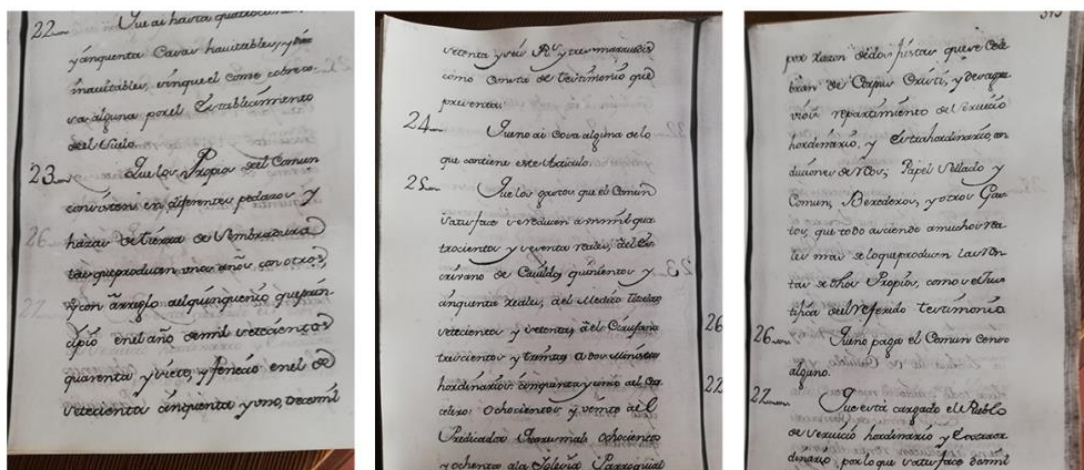 22 Que ai hasta quatrocientas
y cinquenta Casas havitables, y diez
inavitables, sinque el comc cobre co-
sa alguna por el Establecimiento
del Suelo.
23 Que los Propios del Comun
consisten en diferentes pedazos y
hazas de tierra de Sembradura
las que producen unos años, con otros,
y con arreglo al quinquenio que prin-
cipió en el año de mil setecientos
quarenta y siete, y fenecio en el de
setecientos cinquenta y uno, dos mil
setenta y seis Rs. y tres maravedis
como consta de testimonio que
presentan.
24 Que no ai cosa alguna de lo
que contiene este Articulo.
25 Que los gastos que el Comun
satisface se reducen a mil qua
trocientos y sesenta reales, del Es-
crivano de Cavildo, quinientos y
cinquenta Reales, del Medico titular
setecientos y setenta, del Cirujano
trescientos y treinta, a dos Ministros
hordinarios cinquenta y uno al Car
celero: Ochocientos y veinte del
Predicador Quaresmal: Ochocientos
y ochenta a la Iglesia Parroquial
por razon de dos fiestas que se cele
bran de Corpus Cristi, y de
repartimiento del servicio
hordinario, y Extrahordinario, con
duciones de Rs. Papel Sellado y
Comun, Verederos, y otros Gas-
tos, que todo asciende a muchos rea
les mas de lo que producen las ren
tas de dhos Propios, como se Jus
tifica del referido testimonio
26 Que no paga el Comun Censo
alguno.
27 Que está cargado el Pueblo
de servicio hordinario y Extraor
dinario, por lo que satisface de mil